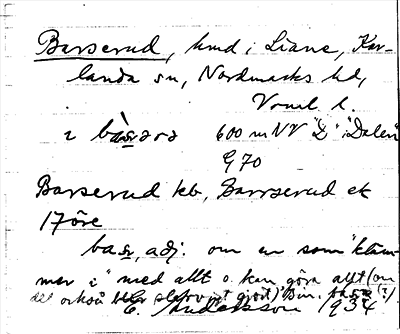 Barserud, hmd i Liane, Kar-
landa sn, Nordmarks hd,
Vrml. l.
i 600 m NV "D" i "Dalen"
G 70
Barserud kb, Barrserud ek
17öre
adj. om en som "kläm-
mer i" med allt o. kan göra allt (om
det också blir
E. Andersson 1934